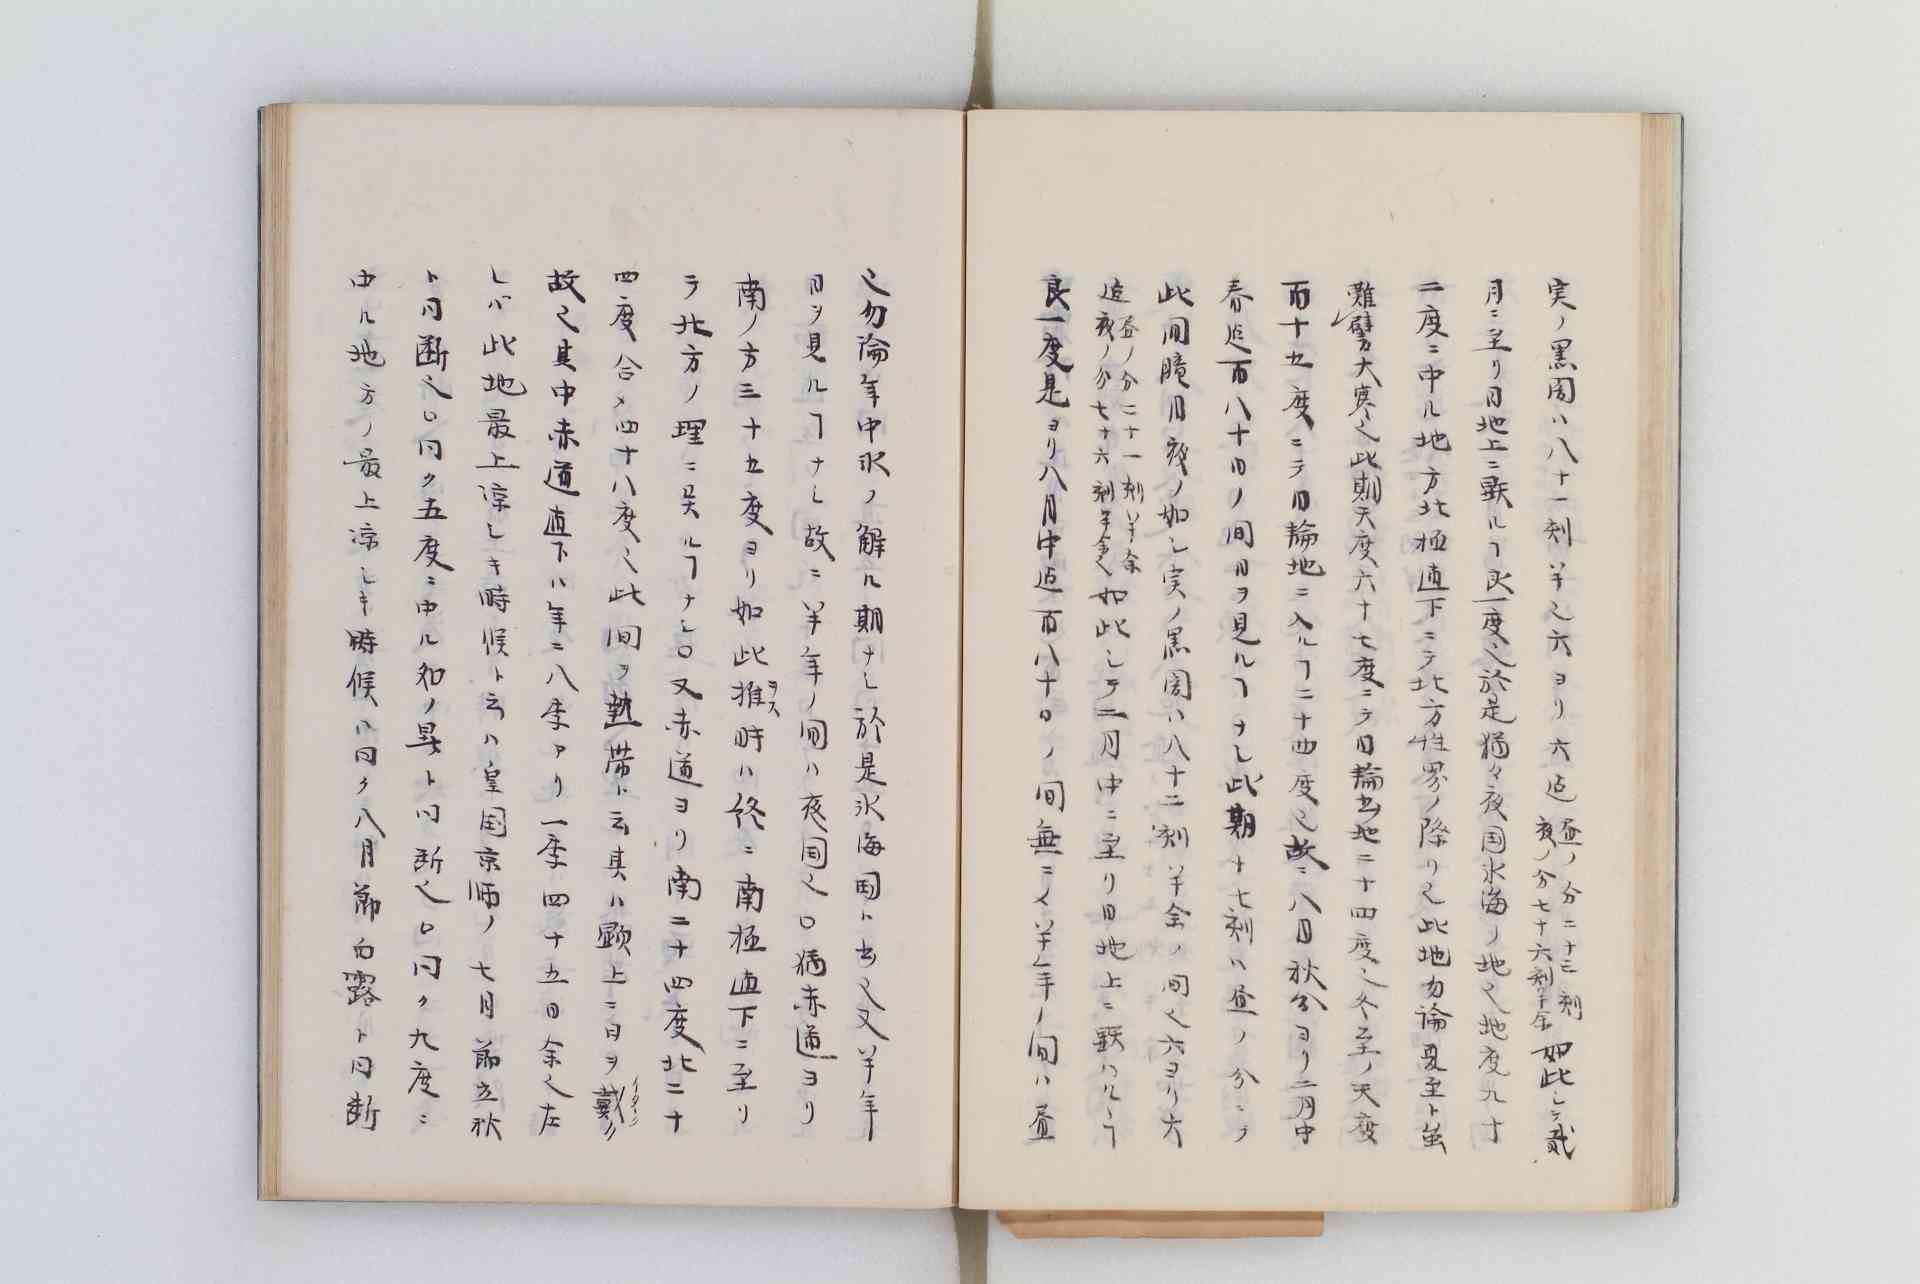 実ノ黒周ハ八十一刻半也六ヨリ六迄昼ノ分二十三刻夜ノ分七十六刻半余如此シテ弐
月ニ至リ日地上ニ顕ルヿ良一度也於是猶々夜国氷海ノ地也地度九十
二度ニ中ル地方北極直下ニテ北方性界ノ降リ也此地勿論夏至ト虽
難譬大寒也此期天度六十七度ニテ日輪出地二十四度也冬至ノ天度
百十五度ニテ日輪地ニ入ルヿ二十四度也故ニ八月秋分ヨリ二月中
春迄百八十日ノ間日ヲ見ルヿナシ此期十七刻ハ昼ノ分ニテ
此間朣月夜ノ如シ実ノ黒周ハ八十二刻半余ノ間也六ヨリ六
迄昼ノ分二十一刻半余夜ノ分七十六刻半余也如此シテ二月中ニ至リ日地上ニ顕ハルヽヿ
良一度是ヨリ八月中迄百八十日ノ間無ニメ半年ノ間ハ昼
也勿論年中氷ノ解ル期ナシ於是氷海国ト云也又半年
日ヲ見ルヿナシ故ニ半年ノ間ハ夜国也○猶赤道ヨリ
南ノ方三十五度ヨリ如此推ヲス時ハ終ニ南極直下ニ至リ
テ北方ノ理ニ異ルヿナシ○又赤道ヨリ南二十四度北二十
四度合メ四十八度也此間ヲ熱帯ト云其ハ頭上ニ日ヲ戴イタヽク
故也其中赤道直下ハ年ニ八季アリ一季四十五日余也左
レバ此地最上涼シキ時候ト云ハ皇国京師ノ七月節立秋
ト同断也○同ク五度ニ中ル和ノ暑ト同断也○同ク九度ニ
中ル地方ノ最上涼シキ時候ハ同ク八月節白露ト同断